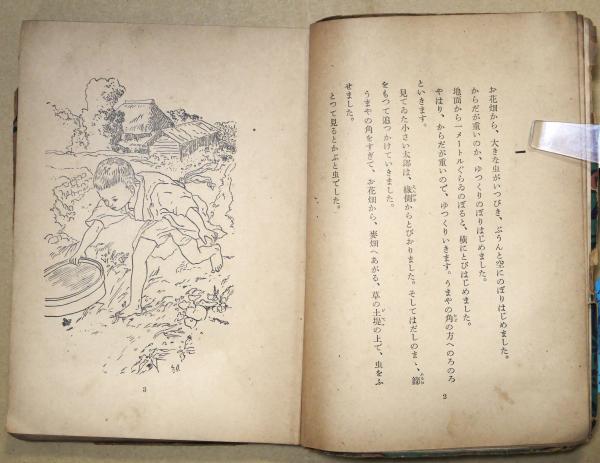 一
お花畑から、大きな虫がいつぴき、ぶうんと空にのぼりはじめました。
からだが重いのか、ゆつくりのぼりはじめました。
地面から一メートルぐらゐのぼると、横にとびはじめました。
やはり、からだが重いので、ゆつくりいきます。うまやの角の方へのろのろ
といきます。
見てゐた小さい太郎は、縁側からとびおりました。そしてはだしのまゝ、篩
をもつて追つかけていきました。
うまやの角をすぎて、お花畑から、麦畑へあがる、草の土堤の上で、虫をふ
せました。
とつて見るとかぶと虫でした。
2
3